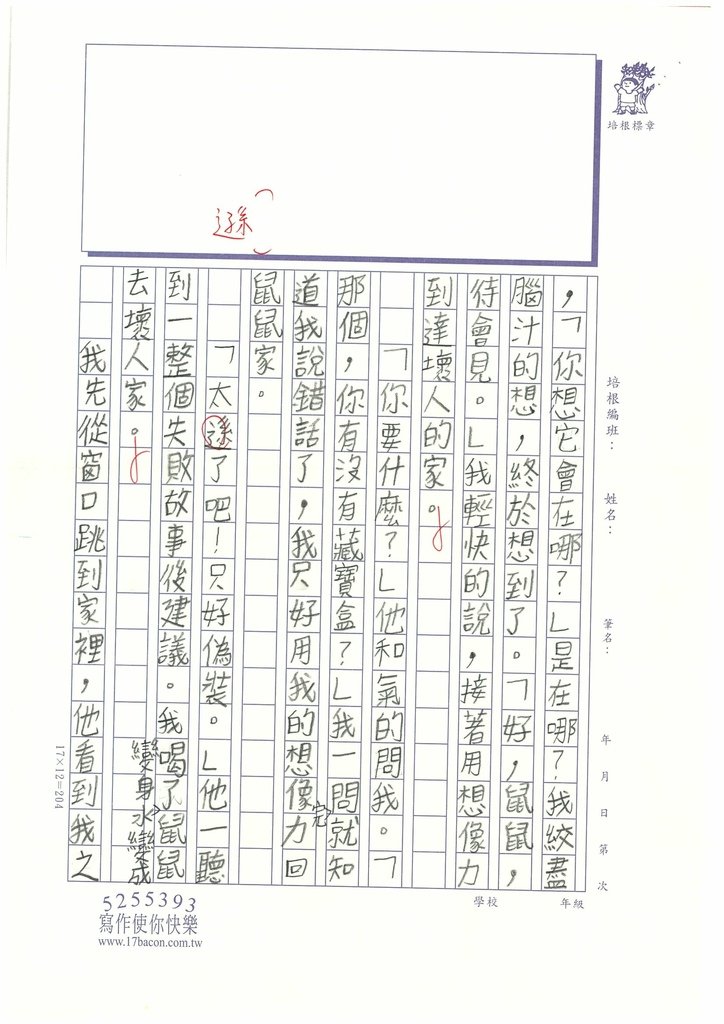 培根標章
遜
培根編班： 姓名： 筆名： 年 月 日 第 次
，「你想它會在哪？」是在哪？我絞盡
腦汁的想，終於想到了。「好，鼠鼠，
待會見。」我輕快的說，接著用想像力
到達壞人的家。
「你要什麼？」他和氣的問我。「
那個，你有沒有藏寶盒？」我一問完就知
道我說錯話了，我只好用我的想像力回
鼠鼠家。
「太遜了吧！只好偽裝。」他一聽
到一整個失敗故事後建議。我喝了鼠鼠
變身水變成
去壞人家。
我先從窗口跳到家裡，他看到我之
17×12=204
學校 年級
5255393
寫作使你快樂
www.17bacon.com.tw